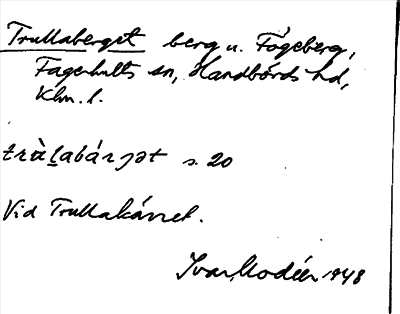 Trullaberget berg u. Fågeberg,
Fagerhults sn, Handbörds hd,
Klm. l.
s. 20
Vid Trullakärret.
Ivar Modéer 1948